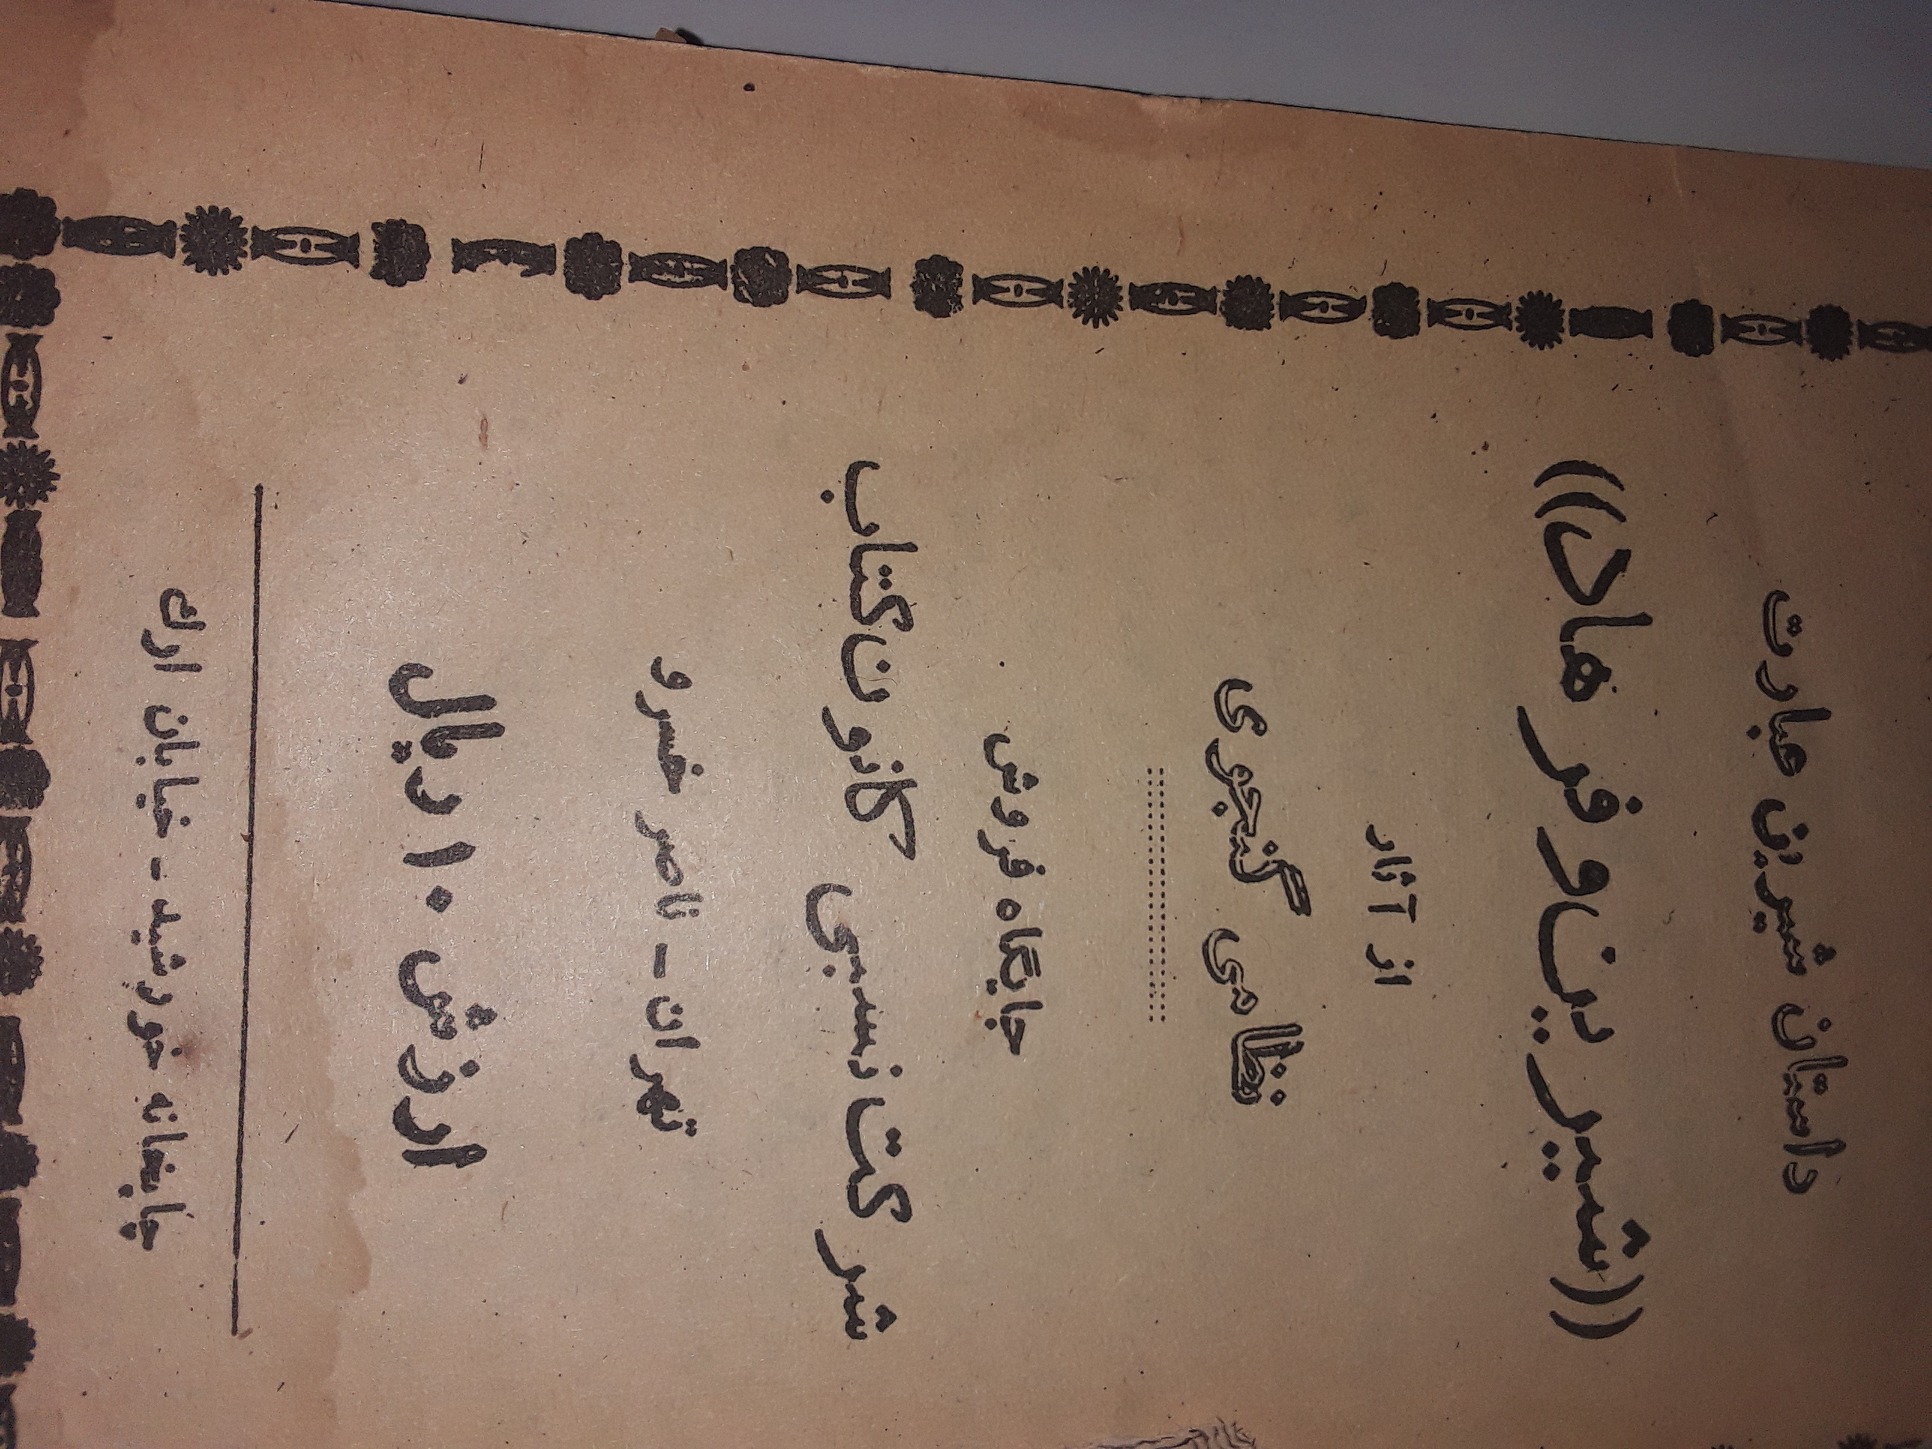 داستان شیرین عبارت
((شیرین و فرهاد))
از آثار
نظامی گنجوی
جایگاه فروش
شرکت نسبی کانون کتاب
تهران ــ ناصر خسرو
ارزش ۱۰ ریال
چاپخانه خورشید ــ خیابان ارك